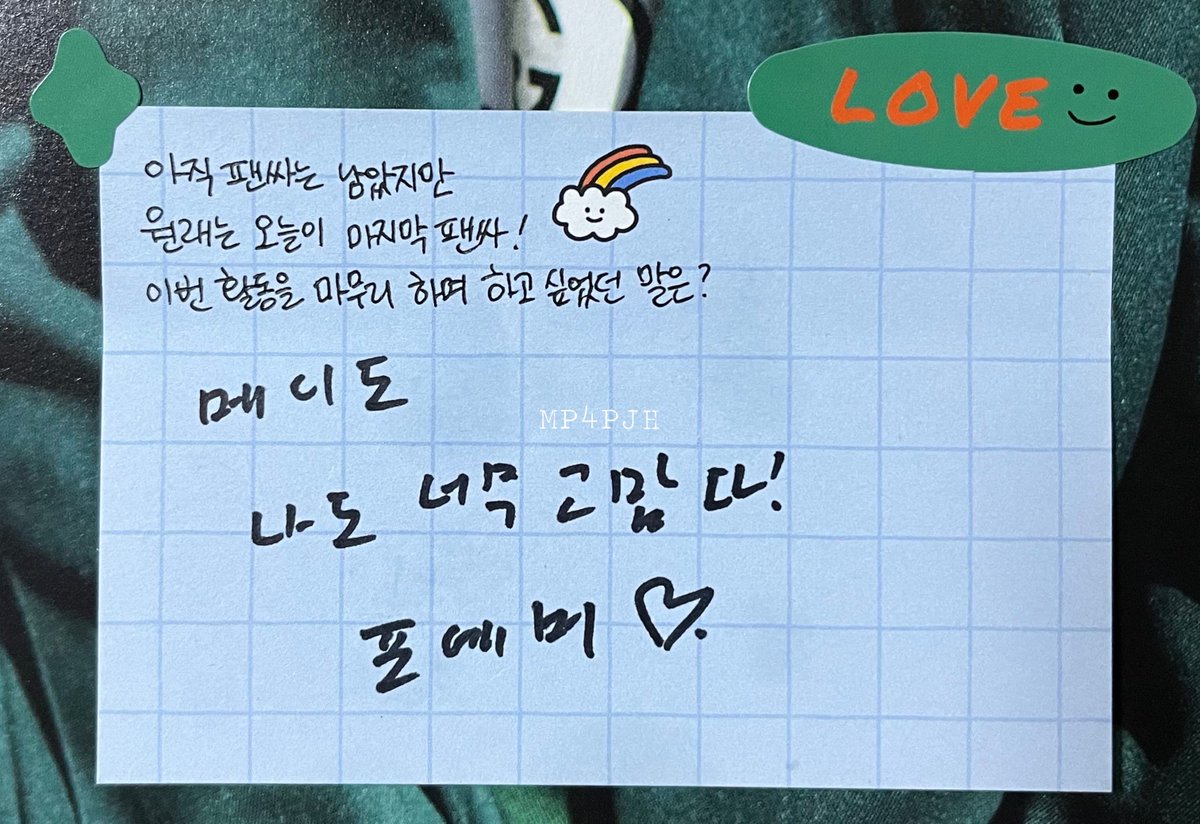 LOVE
아직 팬싸는 남았지만
원래는 오늘이 마지막 팬싸!
이번 활동을 마무리 하며 하고 싶었던 말은?
메이도
MP4PJH
나도 너무 고맙다!
포에버 ♡.